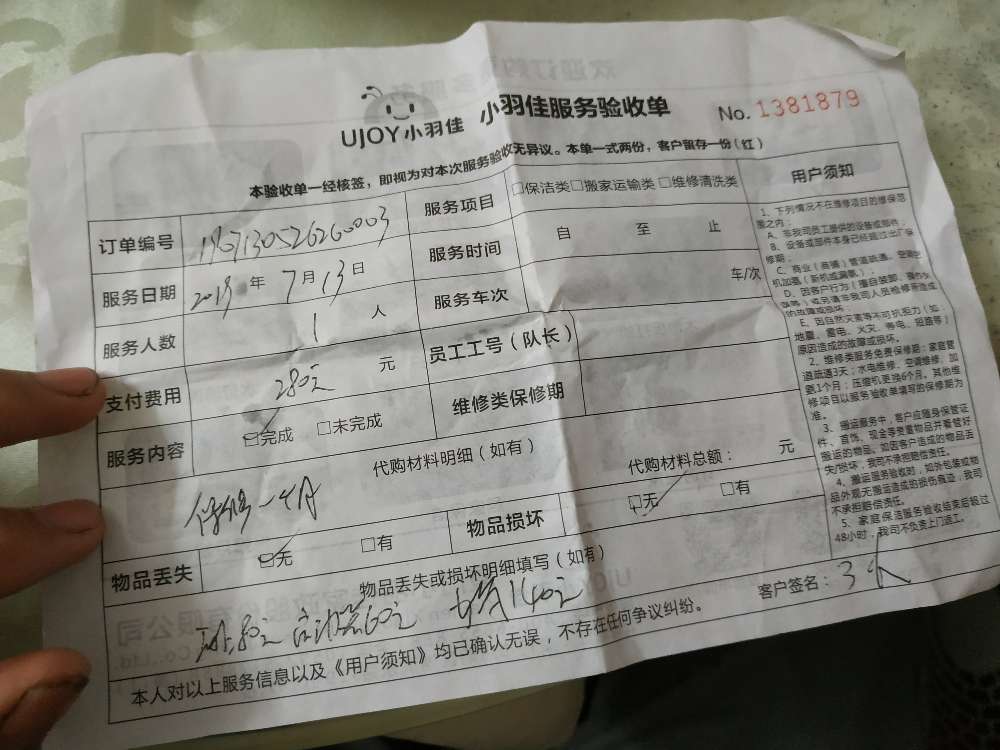 UJOY小羽佳 小羽佳服务验收单 No. 1381879
本验收单一经核签，即视为对本次服务验收无异议。本单一式两份，客户留存一份(红)
订单编号
服务项目 □保洁类□搬家运输类□维修清洗类
服务日期 2019年7月13日
服务时间 自 至 止
服务人数 1 人
服务车次 车/次
支付费用 280元 元
员工工号（队长）
服务内容 □完成 □未完成
维修类保修期
代购材料明细（如有）
代购材料总额： 元
保修一个月
物品丢失 □无 □有
物品损坏 □无 □有
物品丢失或损坏明细填写（如有）
80元 60元 140元
本人对以上服务信息以及《用户须知》均已确认无误，不存在任何争议纠纷。
客户签名：
用户须知
1、下列情况不在维修项目的维保范
围之内：
A、非我司员工提供的设备或部件；
B、设备或部件本身已经超过出厂保
修期；
C、商业（商铺）管道疏通、空调
机加氟（新机或漏氟）；
D、因客户行为（擅自装卸、
的故障或损坏
E、因自然灾害等不可抗拒力（如
地震、雷电、火灾、等电、短路等）
原因造成的故障或损坏。
2、维修类服务免费保修期：家庭管
道疏通3天；水电维修、空调维修、加
氨1个月；压缩机更换6个月。其他维
修项目以服务验收单填写的保修期为
准。
3、搬运服务中，客户应随身保管证
件、首饰、现金等贵重物品并看管好
搬运的物品。如因客户造成的物品丢
失/损坏，我司不承担赔偿责任。
4、搬运服务验收时，如拆包装或物
品外观无搬运造成的损伤痕迹，我司
不承担赔偿责任。
5、家庭保洁服务验收结束后超过
48小时，我司不负责上门返工。